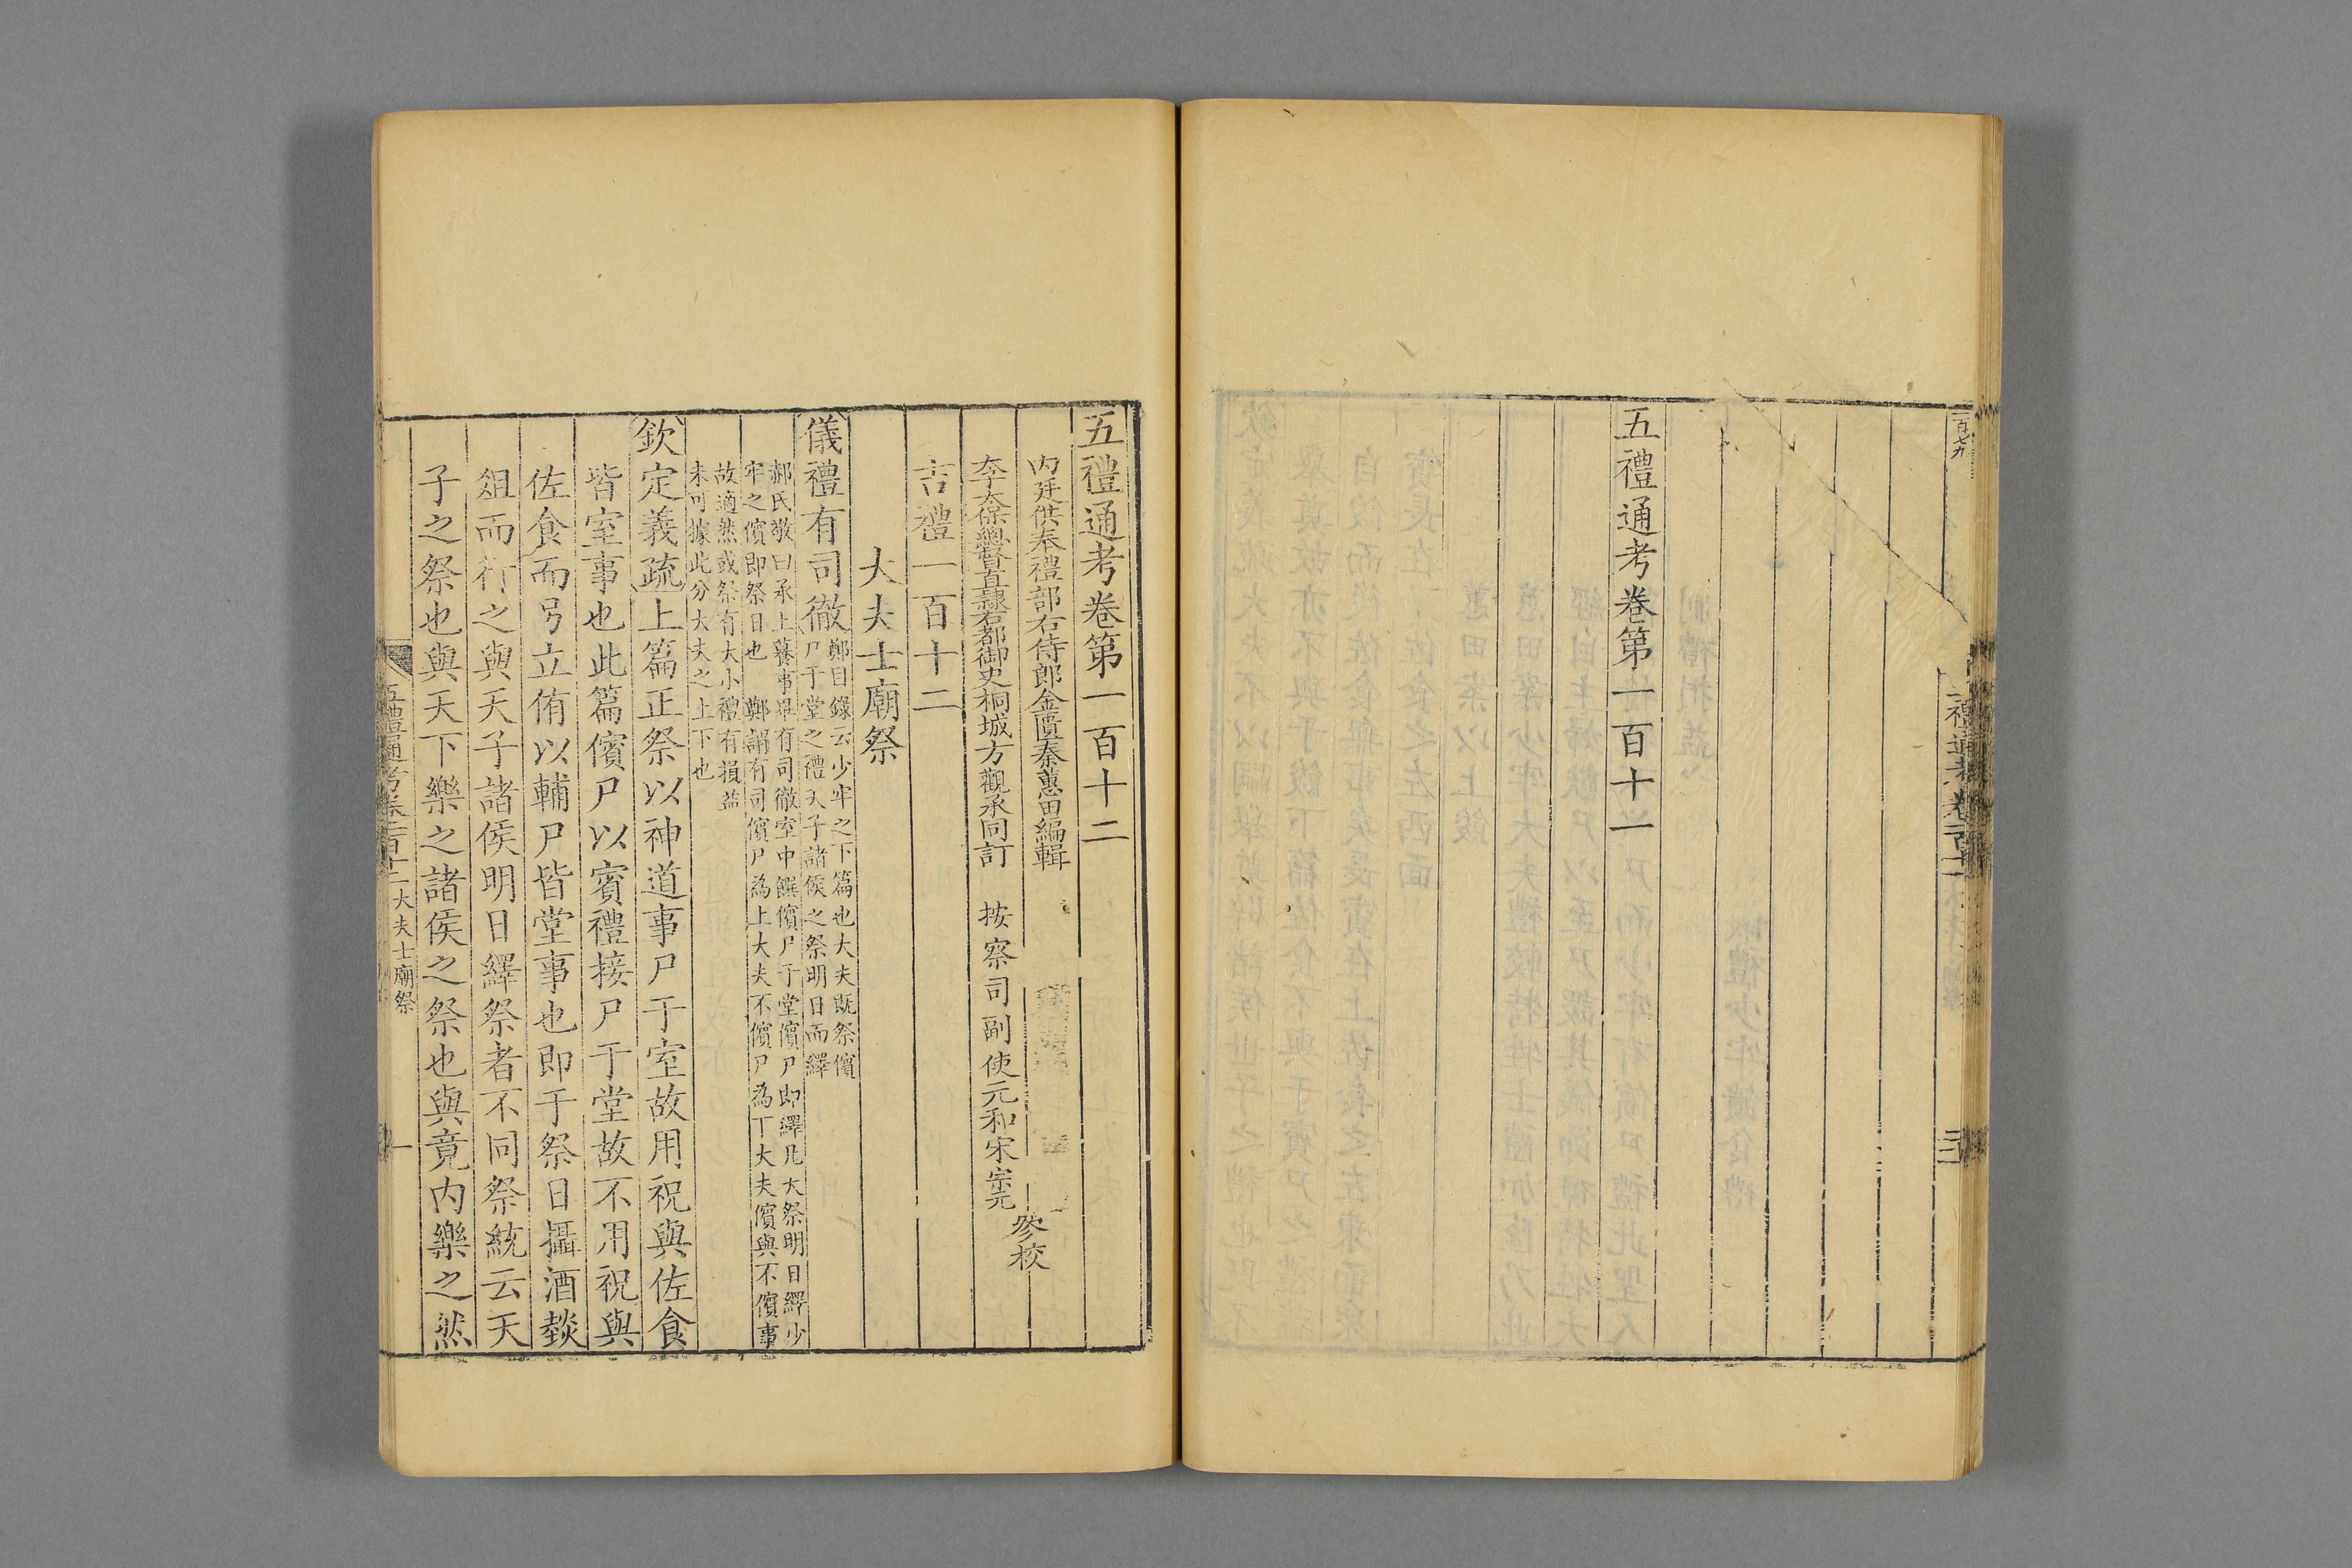 五禮通考卷第一百十一
五禮通考卷第一百十二
內廷供奉禮部右侍郎金匱秦蕙田編輯
太子太保總督直隸右都御史桐城方觀承同訂
按察司副使元和宋宗元
參校
吉禮一百十二
大夫士廟祭
儀禮有司徹
鄭目錄云少牢之下篇也大夫既祭儐
尸于堂之禮天子諸侯之祭明日而繹
郝氏敬曰承上養事畢有司徹室中饌儐尸于堂儐尸即繹凡大祭明日繹少
牢之儐即祭日也 鄭謂有司儐尸為上大夫不儐尸為下大夫儐與不儐事
故適然或祭有大小禮有損益
未可據此分大夫之上下也
欽定義疏上篇正祭以神道事尸于室故用祝與佐食
皆室事也此篇儐尸以賓禮接尸于堂故不用祝與
佐食而別立侑以輔尸皆堂事也即于祭日攝酒燅
俎而行之與天子諸侯明日繹祭者不同祭統云天
子之祭也與天下樂之諸侯之祭也與竟內樂之然
五禮通考卷一百十二 大夫士廟祭
一